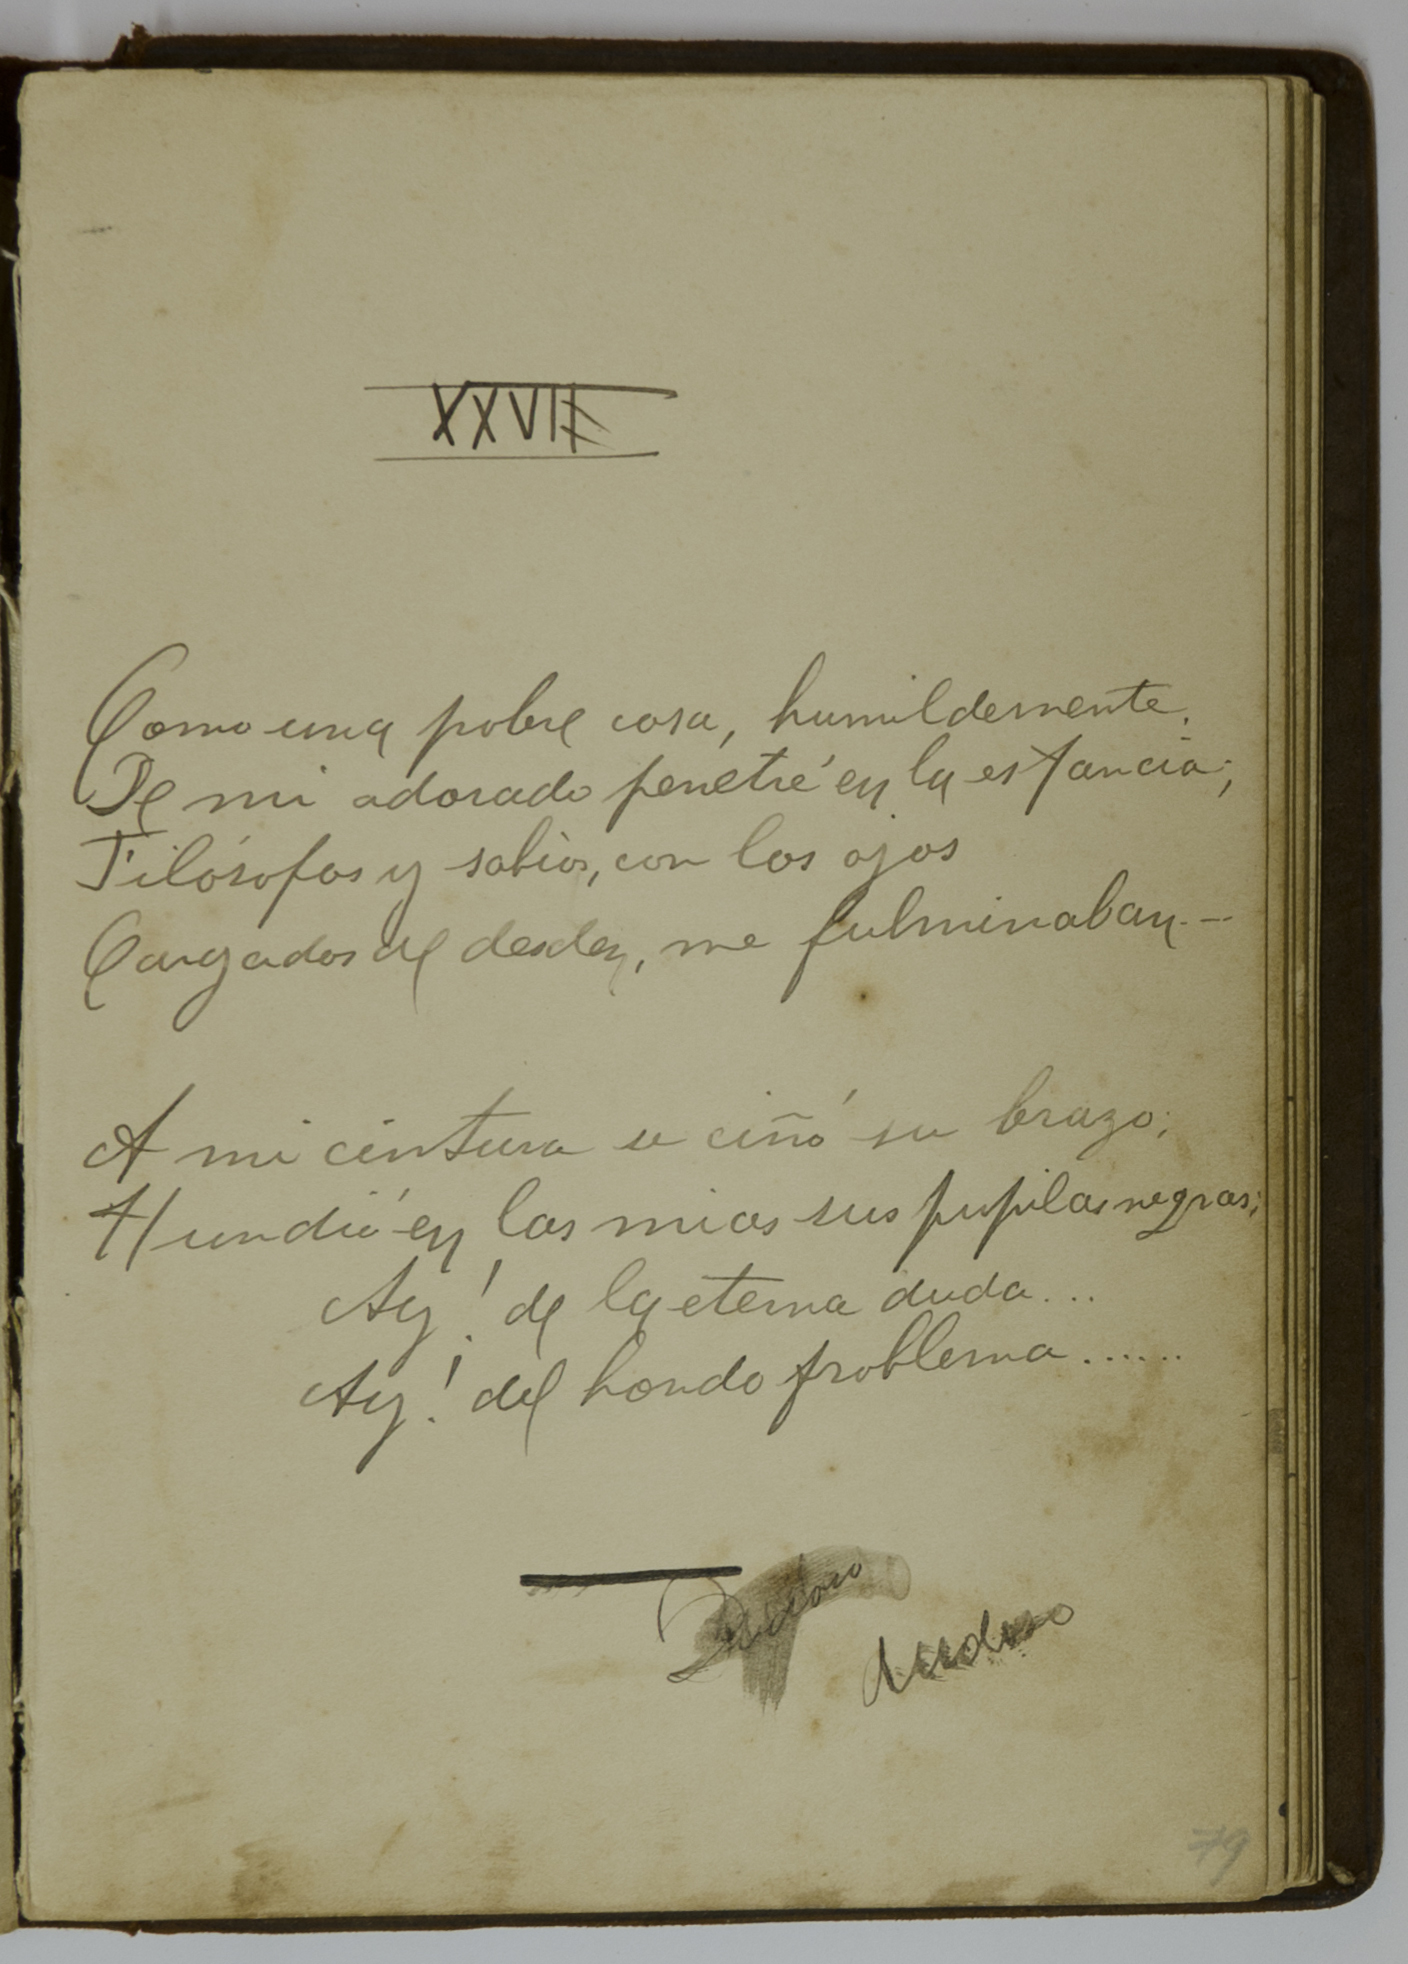 XXVII
Como una pobre cosa, humildemente.
De mi adorado penetré en la estancia;
Filósofos y sabios, con los ojos
Cargados de desden, me fulminaban.-
A mi cintura se ciñó su brazo;
Hundió en las mias sus pupilas negras;
Ay! de la eterna duda...
Ay! del hondo problema......
dudoso
79